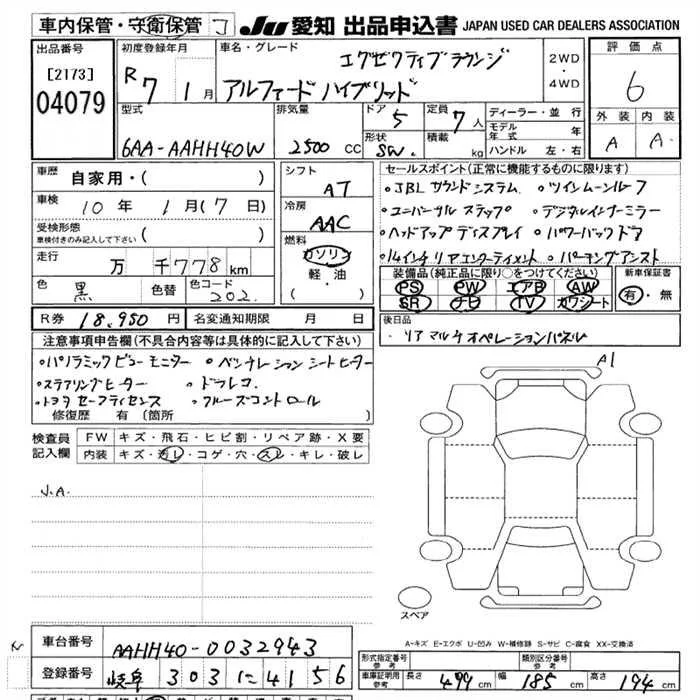 車内保管・守衛保管 J JU 愛知 出品申込書 JAPAN USED CAR DEALERS ASSOCIATION
出品番号 [2173] 04079
初度登録年月 R7 1月
車名・グレード エグゼクティブラウンジ
アルファード ハイブリッド
2WD・4WD
評価点 6
外装 内装
A A
型式 6AA-AAHH40W
排気量 2500 CC
ドア 5
形状 SW.
定員 7人
積載 kg
ディーラー・並行
モデル年式 年
ハンドル 左・右
車歴 自家用・( )
車検 10年 1月(7日)
受検形態 車検付きのみ記入して下さい ( )
走行 万 千778km
色 黒 色替 色コード 202.
R券 18,950円 名変通知期限 月 日
シフト AT
冷房 AAC
燃料 ガソリン 軽・油
セールスポイント(正常に機能するものに限ります)
・JBLサウンドシステム ・ツインムーンルーフ
・ユニバーサルステップ ・デジタルインナーミラー
・ヘッドアップディスプレイ ・パワーバックドア
・14インチリアエンターテイメント ・パーキングアシスト
装備品(純正品に限り○をつけてください) 新車保証書
PS PW エアB AW 有・無
SR ナビ TV カワシート
後日品
・リアマルチオペレーションパネル
注意事項申告欄(不具合内容等は具体的に記入して下さい)
・パノラミックビューモニター ・ベンチレーションシートヒーター
・ステアリングヒーター ・ドラレコ.
・トヨタセーフティセンス ・クルーズコントロール
修復歴 有(箇所
検査員記入欄 FW キズ・飛石・ヒビ割・リペア跡・X要
内装 キズ・汚レ・コゲ・穴・スレ・キレ・破レ
J.A.
A1
スペア
A-キズ E-エクボ U-凹み W-補修跡 S-サビ C-腐食 XX-交換済
車台番号 AAHH40-0032943
登録番号 岐阜 303 に 4156
形式指定番号 参考 類別区分番号 参考
車庫証明用 参考 長さ 499cm 幅 185cm 高さ 194cm